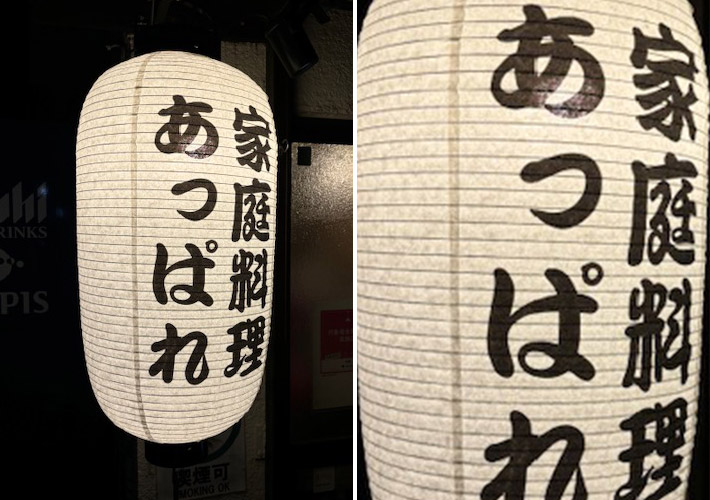 家庭料理
あっぱれ
hi
RINKS
PIS
喫煙可
SMOKING OK
家庭料理
あっぱれ